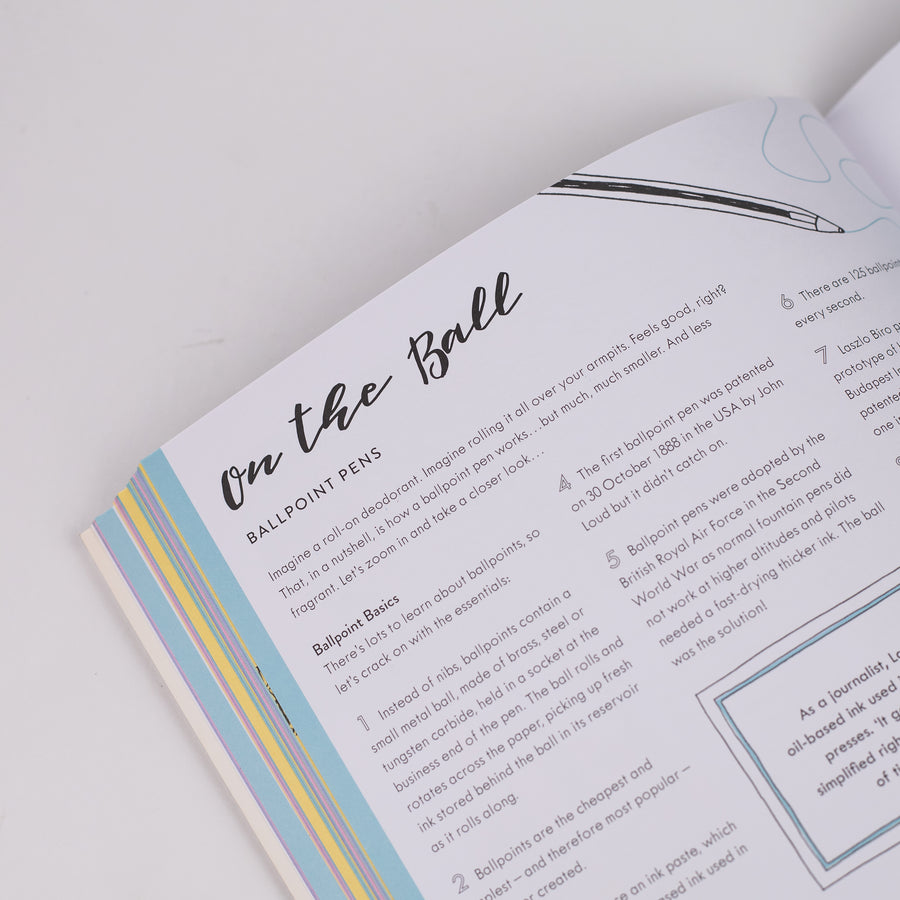 On the Ball
BALLPOINT PENS
Imagine a roll-on deodorant. Imagine rolling it all over your armpits. Feels good, right?
That, in a nutshell, is how a ballpoint pen works...but much, much smaller. And less
fragrant. Let's zoom in and take a closer look...
Ballpoint Basics
There's lots to learn about ballpoints, so
let's crack on with the essentials:
1 Instead of nibs, ballpoints contain a
small metal ball, made of brass, steel or
tungsten carbide, held in a socket at the
business end of the pen. The ball rolls and
rotates across the paper, picking up fresh
ink stored behind the ball in its reservoir
as it rolls along.
2 Ballpoints are the cheapest and
– and therefore most popular –
created.
an ink paste, which
ink used in
4 The first ballpoint pen was patented
on 30 October 1888 in the USA by John
Loud but it didn't catch on.
5 Ballpoint pens were adopted by the
British Royal Air Force in the Second
World War as normal fountain pens did
not work at higher altitudes and pilots
needed a fast-drying thicker ink. The ball
was the solution!
6 There are 125
every second.
7 Laszlo Biro
prototype of
Budapest
patented
one
As a journalist,
oil-based ink used
presses. 'It
simplified
of